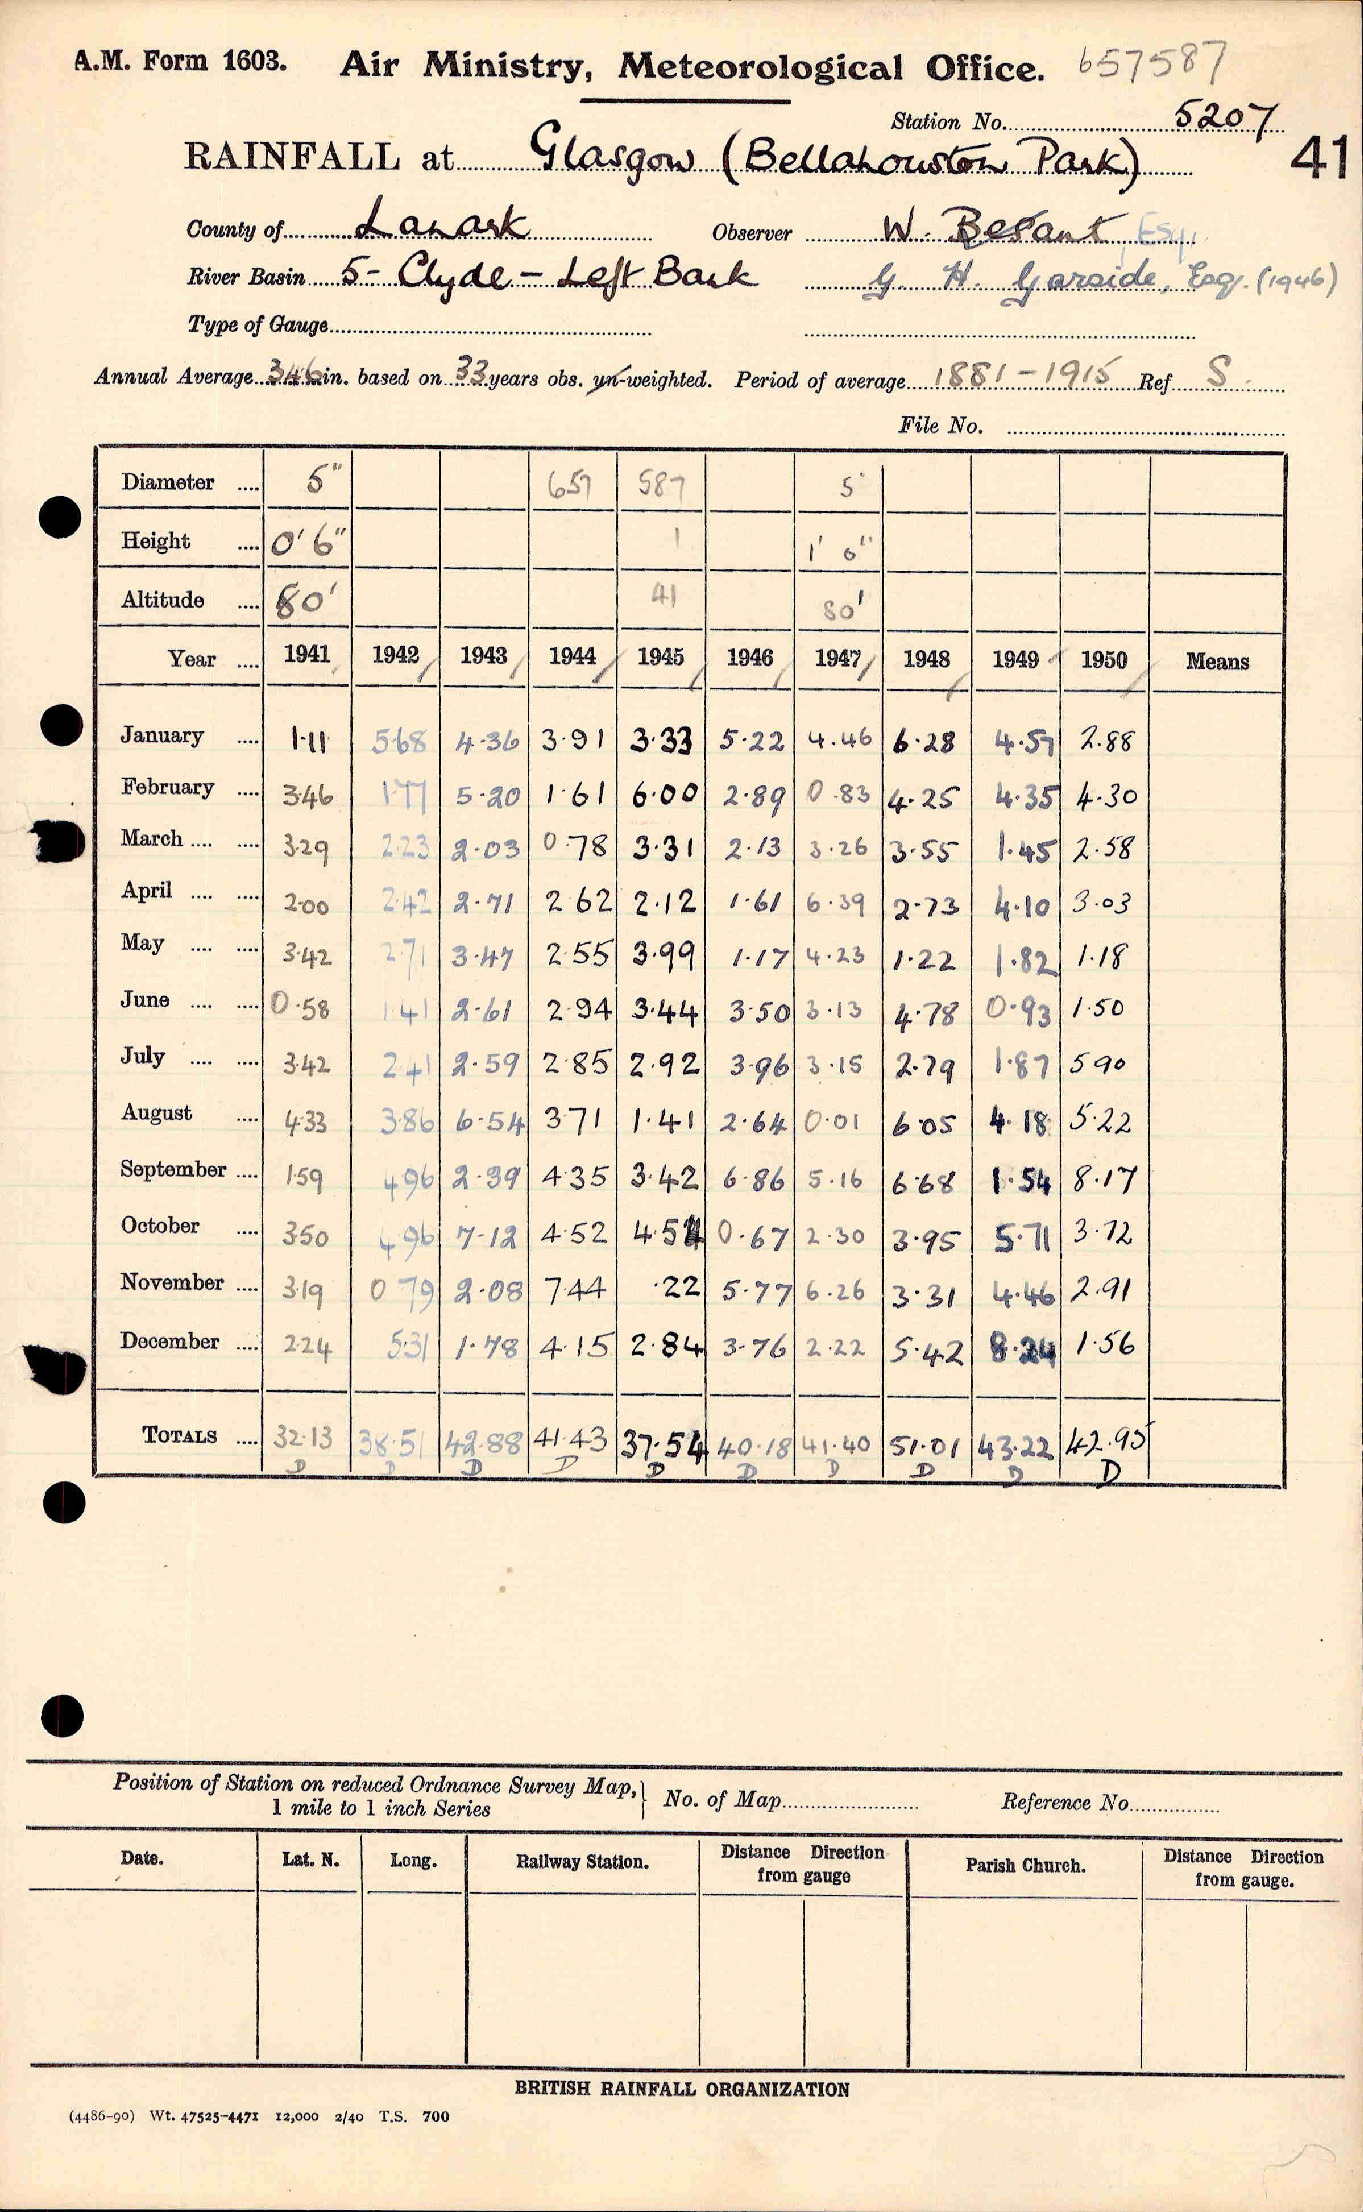 A.M. Form 1603. Air Ministry, Meteorological Office. 657587
Station No. 5207
RAINFALL at Glasgow (Bellahouston Park) 41
County of Lanark Observer W. Besant, Esq.
River Basin 5 - Clyde - Left Bank G. H. Garside, Esq. (1946)
Type of Gauge
Annual Average 34.6 in. based on 33 years obs. un-weighted. Period of average 1881-1915 Ref S.
File No.
Diameter .... 5" 657 587 5"
Height .... 0' 6" 1 1' 0"
Altitude .... 80' 41 80'
Year .... 1941 1942 1943 1944 1945 1946 1947 1948 1949 1950 Means
January .... 1.11 5.68 4.36 3.91 3.33 5.22 4.46 6.28 4.57 2.88
February .... 3.46 1.77 5.20 1.61 6.00 2.89 0.83 4.25 4.35 4.30
March .... .... 3.29 2.23 2.03 0.78 3.31 2.13 3.26 3.55 1.45 2.58
April .... .... 2.00 2.42 2.71 2.62 2.12 1.61 6.39 2.73 4.10 3.03
May .... .... 3.42 2.71 3.47 2.55 3.99 1.17 4.23 1.22 1.82 1.18
June .... .... 0.58 1.41 2.61 2.94 3.44 3.50 3.13 4.78 0.93 1.50
July .... .... 3.42 2.41 2.59 2.85 2.92 3.96 3.15 2.79 1.87 5.90
August .... 4.33 3.86 6.54 3.71 1.41 2.64 0.01 6.05 4.18 5.22
September .... 1.59 4.96 2.39 4.35 3.42 6.86 5.16 6.68 1.54 8.17
October .... 3.50 4.96 7.12 4.52 4.54 0.67 2.30 3.95 5.71 3.72
November .... 3.19 0.79 2.08 7.44 .22 5.77 6.26 3.31 4.46 2.91
December .... 2.24 5.31 1.78 4.15 2.84 3.76 2.22 5.42 8.24 1.56
TOTALS .... 32.13 38.51 42.88 41.43 37.54 40.18 41.40 51.01 43.22 42.95
D D D D D D D D D D
Position of Station on reduced Ordnance Survey Map,
1 mile to 1 inch Series
No. of Map Reference No.
Date. Lat. N. Long. Railway Station. Distance Direction from gauge Parish Church. Distance Direction from gauge.
BRITISH RAINFALL ORGANIZATION
(4486-90) Wt. 47525-4471 12,000 2/40 T.S. 700